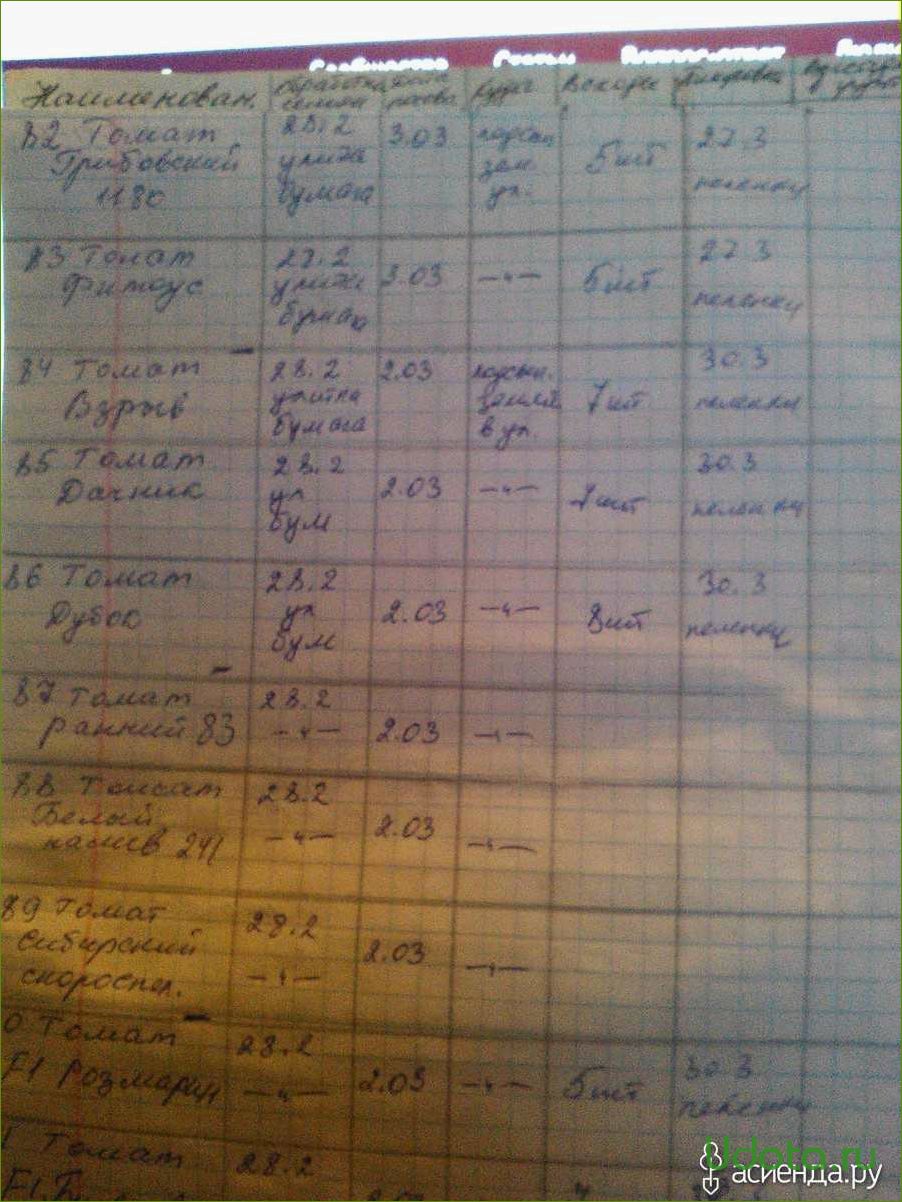 Наименован. обработка семян посева грунт Всходы пикировка
82 Томат Грибовский 1180 28.2 улитка бумага 3.03 подсып. зем. ул. 5 шт 27.3 пеленки
83 Томат 28.2 улитка бумага 3.03 —"— 5 шт 27.3 пеленки
84 Томат Взрыв 28.2 улитка бумага 2.03 подсып. землей в ул. 7 шт 30.3 пеленки
85 Томат Дачник 28.2 ул бум 2.03 —"— шт 30.3 пеленки
86 Томат Дубок 28.2 ул бум 2.03 —"— 8 шт 30.3 пеленки
87 Томат ранний 83 28.2 —"— 2.03 —"—
88 Томат Белый налив 241 28.2 —"— 2.03 —"—
89 Томат Сибирский скороспел. 28.2 —"— 2.03 —"—
0 Томат F1 Розмарин 28.2 —"— 2.03 —"— 5 шт 30.3 пеленки
Томат 28.2
F1
асиенда.ру